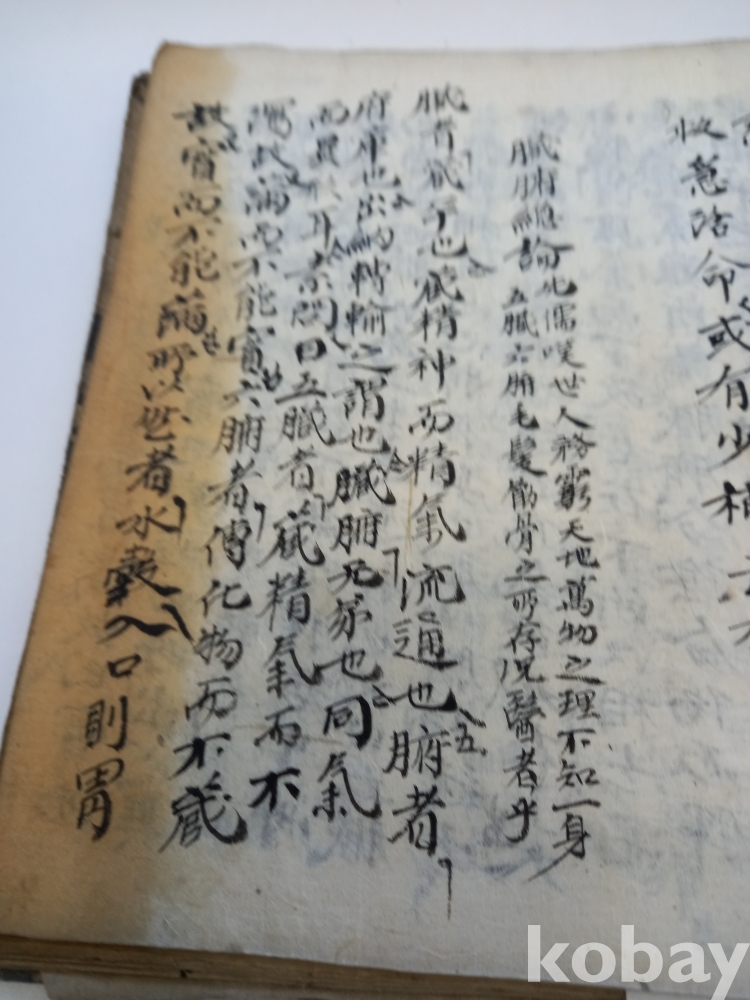 救急活命或有少
臟腑總論 先儒嘆世人務窮天地萬物之理不知一身
五臟六腑毛髮筋骨之所存況醫者乎
臟者藏也藏精神而精氣流通也腑者
府庫也出納轉輸之謂也臟腑兄弟也同氣
而異 耳素問曰五臟者藏精氣而不
瀉故滿而不能實六腑者傳化物而不藏
故實而不能滿所以然者水穀入口則胃
kobay